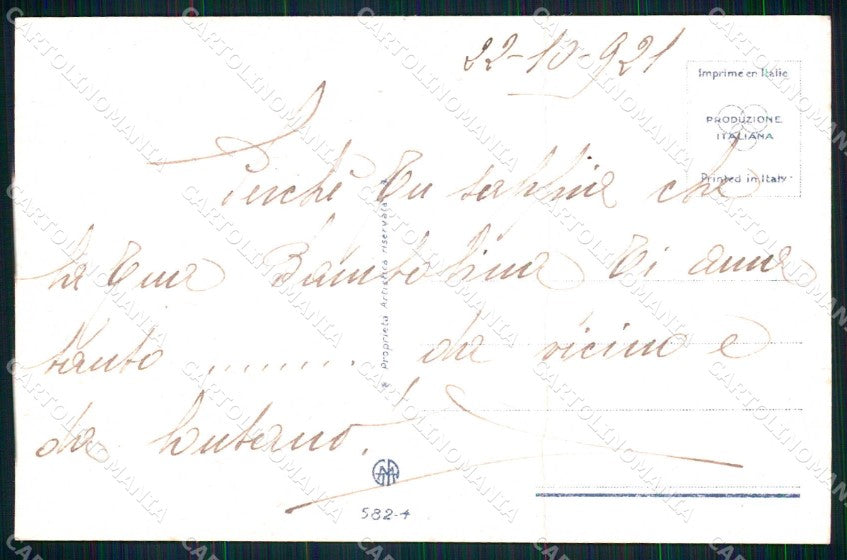 22-10-921
Imprimé en Italie
PRODUZIONE
ITALIANA
Printed in Italy
Perchè Tu sappia che
la Tua Bambolina Ti ama
tanto ......... da vicino e
da lontano.
Proprietà Artistica riservata
582-4
CARTOLINOMANIA